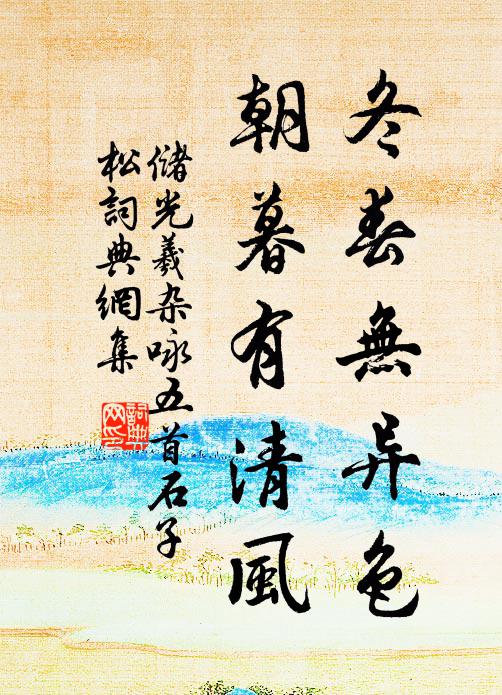 冬春無异色
朝暮有清風
儲光羲杂咏五首石子
松詞典網集
詞典网印